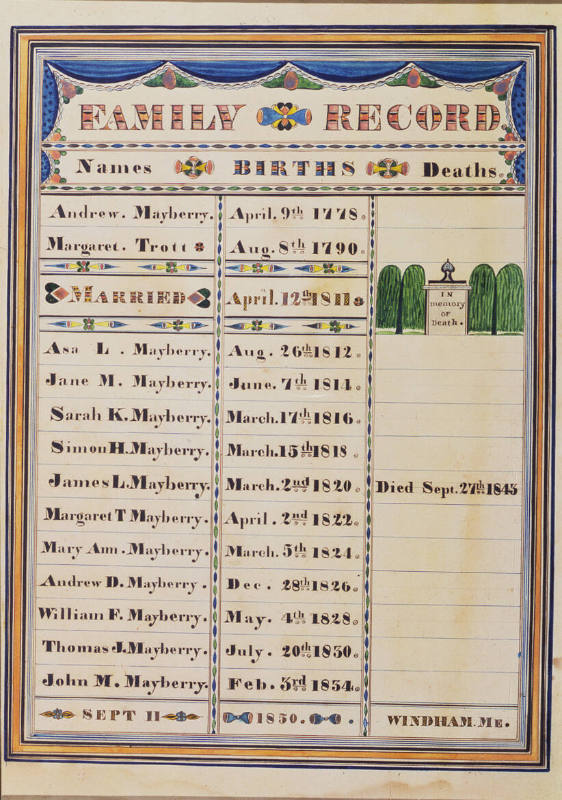 FAMILY RECORD
Names BIRTHS Deaths.
Andrew. Mayberry. April. 9th 1778.
Margaret. Trott Aug. 8th 1790.
MARRIED April. 12th 1811
IN
memory
OF
Death.
Asa L. Mayberry. Aug. 26th 1812.
Jane M. Mayberry. June. 7th 1814.
Sarah K. Mayberry. March. 17th 1816.
Simon H. Mayberry. March. 15th 1818.
James L. Mayberry. March. 2nd 1820. Died Sept. 27th 1845
Margaret T Mayberry. April. 2nd 1822.
Mary Ann. Mayberry. March. 5th 1824.
Andrew D. Mayberry. Dec. 28th 1826.
William F. Mayberry. May. 4th 1828.
Thomas J. Mayberry. July. 20th 1830.
John M. Mayberry. Feb. 3rd 1834.
SEPT 11 1850. WINDHAM. ME.